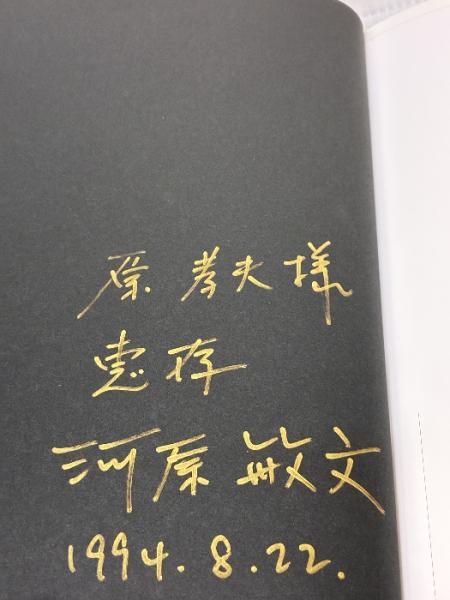 原 孝夫様
恵存
河原 敏文
1994.8.22.